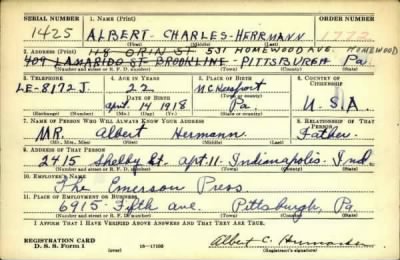 SERIAL NUMBER 1. NAME (Print) ORDER NUMBER
1425 ALBERT CHARLES HERRMANN 1772
(First) (Middle) (Last)
2. ADDRESS (Print) 118 ORIN ST 531 HOMEWOOD AVE. HOMEWOOD
409 LAMARIDO ST BROOKLINE - PITTSBURGH Pa.
(Number and street or R. F. D. number) (Town) (County) (State)
3. TELEPHONE 4. AGE IN YEARS 5. PLACE OF BIRTH 6. COUNTRY OF CITIZENSHIP
LE-8172J. 22 McKeesport
DATE OF BIRTH (Town or county)
Apri 14 1918 Pa U.S.A.
(Exchange) (Number) (Mo.) (Day) (Yr.) (State or country)
7. NAME OF PERSON WHO WILL ALWAYS KNOW YOUR ADDRESS 8. RELATIONSHIP OF THAT PERSON
MR. Albert Hermann Father
(Mr., Mrs., Miss) (First) (Middle) (Last)
9. ADDRESS OF THAT PERSON
2415 Shelby St. apt. 11. Indianapolis. Ind.
(Number and street or R. F. D. number) (Town) (County) (State)
10. EMPLOYER'S NAME
The Emerson Press
11. PLACE OF EMPLOYMENT OR BUSINESS
6915 - Fifth ave. Pittsburgh, Pa.
(Number and street or R. F. D. number) (Town) (County) (State)
I AFFIRM THAT I HAVE VERIFIED ABOVE ANSWERS AND THAT THEY ARE TRUE.
REGISTRATION CARD
D. S. S. Form 1 (over) 16-17105 Albert C.
(Registrant's signature)